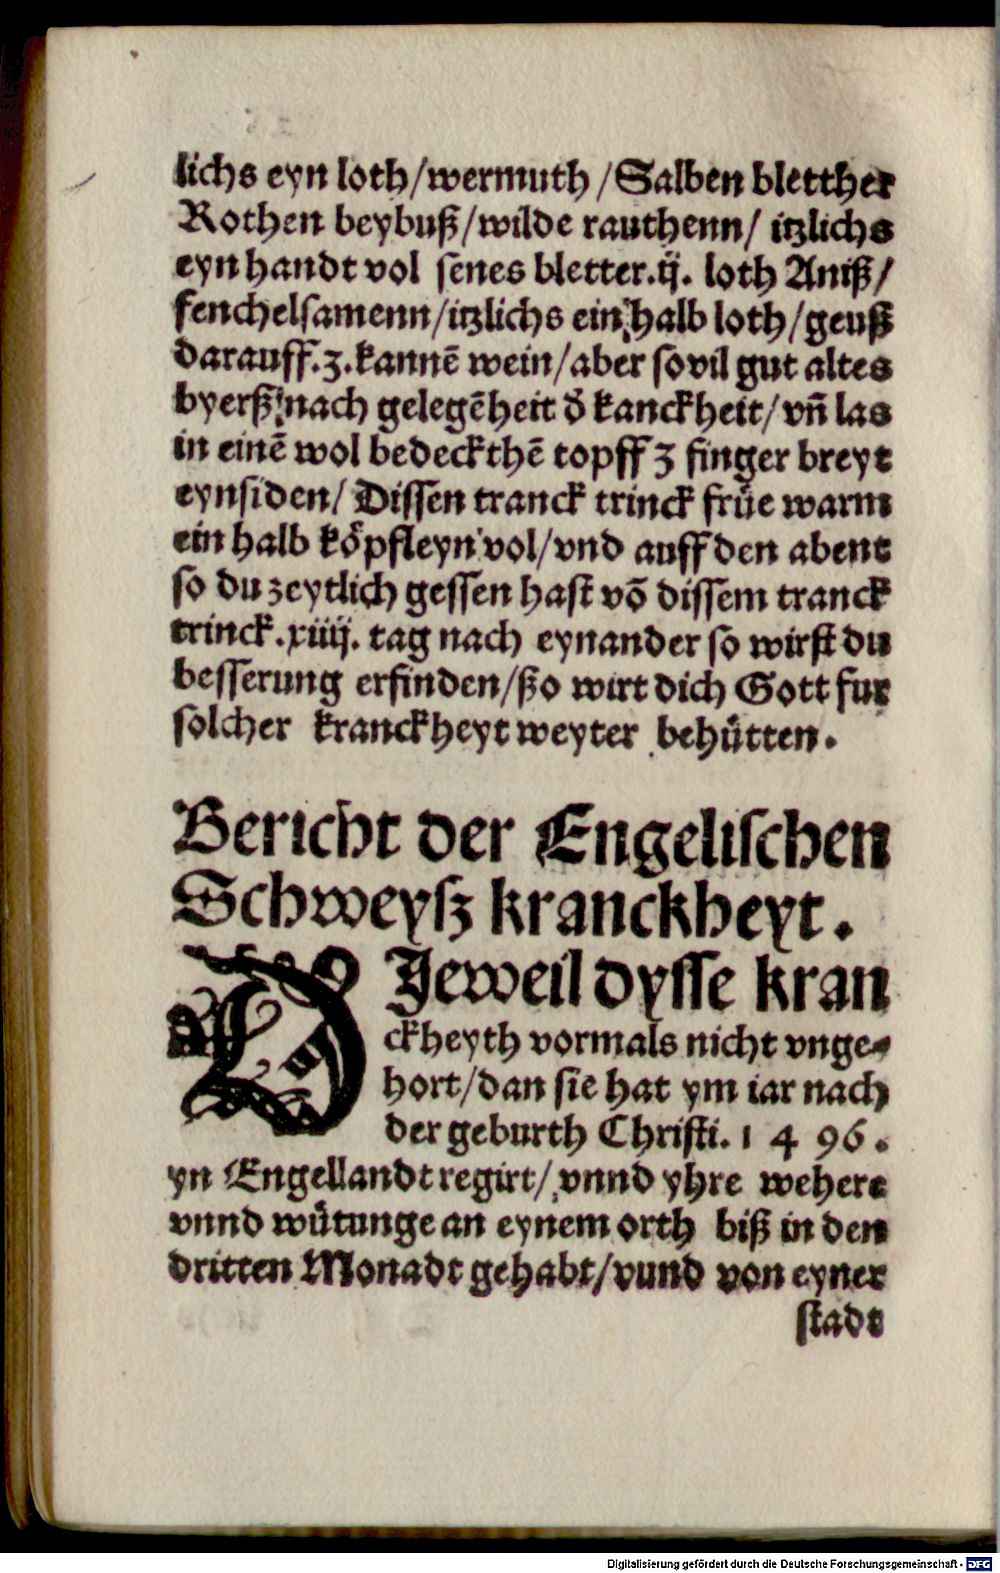 lichs eyn loth/wermuth/Salben bletther
Rothen beybuß/wilde rauthenn/ itzlichs
eyn handt vol senes bletter.ij. loth Aniß/
fenchelsamenn/itzlichs ein halb loth/geuß
darauff.3.kannē wein/aber so vil gut altes
byerß/nach gelegēheit d̄ kanckheit/vn̄ las
in einē wol bedeckthē topff 3 finger breyt
eynsiden/ Dissen tranck trinck früe warm
ein halb köpfleyn vol/vnd auff den abent
so du zeytlich gessen hast vō dissem tranck
trinck.xiiij. tag nach eynander so wirst du
besserung erfinden/ßo wirt dich Gott fur
solcher kranckheyt weyter behütten.
Bericht der Engelischen
Schweysz kranckheyt.
DJeweil dysse kran
ckheyth vormals nicht vnge-
hort/dan sie hat ym iar nach
der geburth Christi. 1 4 96.
yn Engellandt regirt/ vnnd yhre wehere
vnnd wütunge an eynem orth biß in den
dritten Monadt gehabt/vund von eyner
stadt
Digitalisierung gefördert durch die Deutsche Forschungsgemeinschaft - DFG